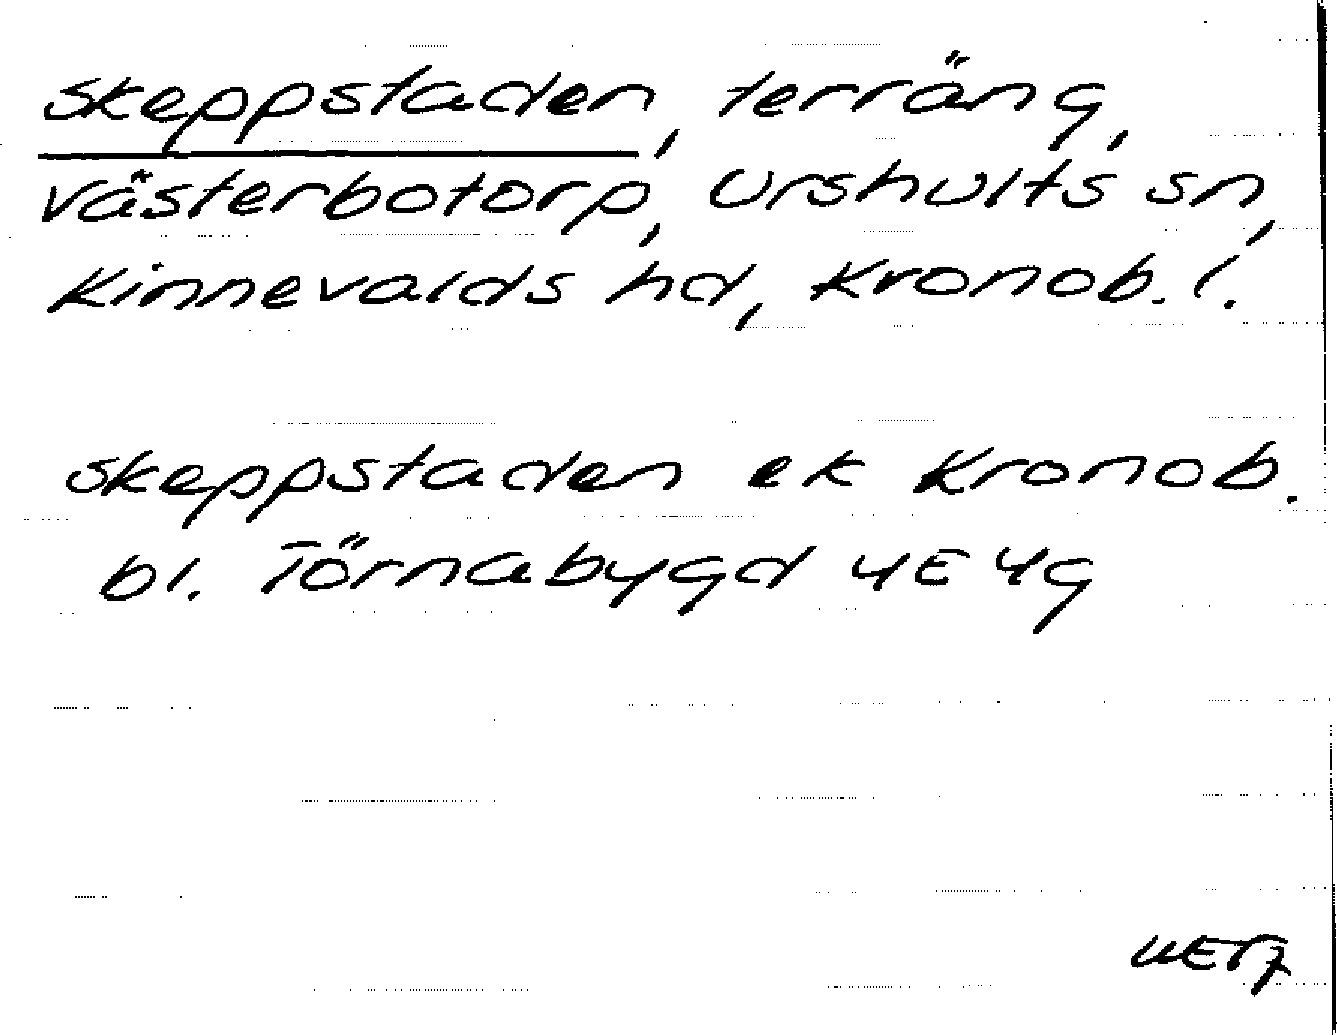 Skeppstaden, terräng,
Västerbotorp, Urshults sn,
Kinnevalds hd, Kronob. l.
Skeppstaden ek Kronob.
bl. Törnabygd 4E 4g